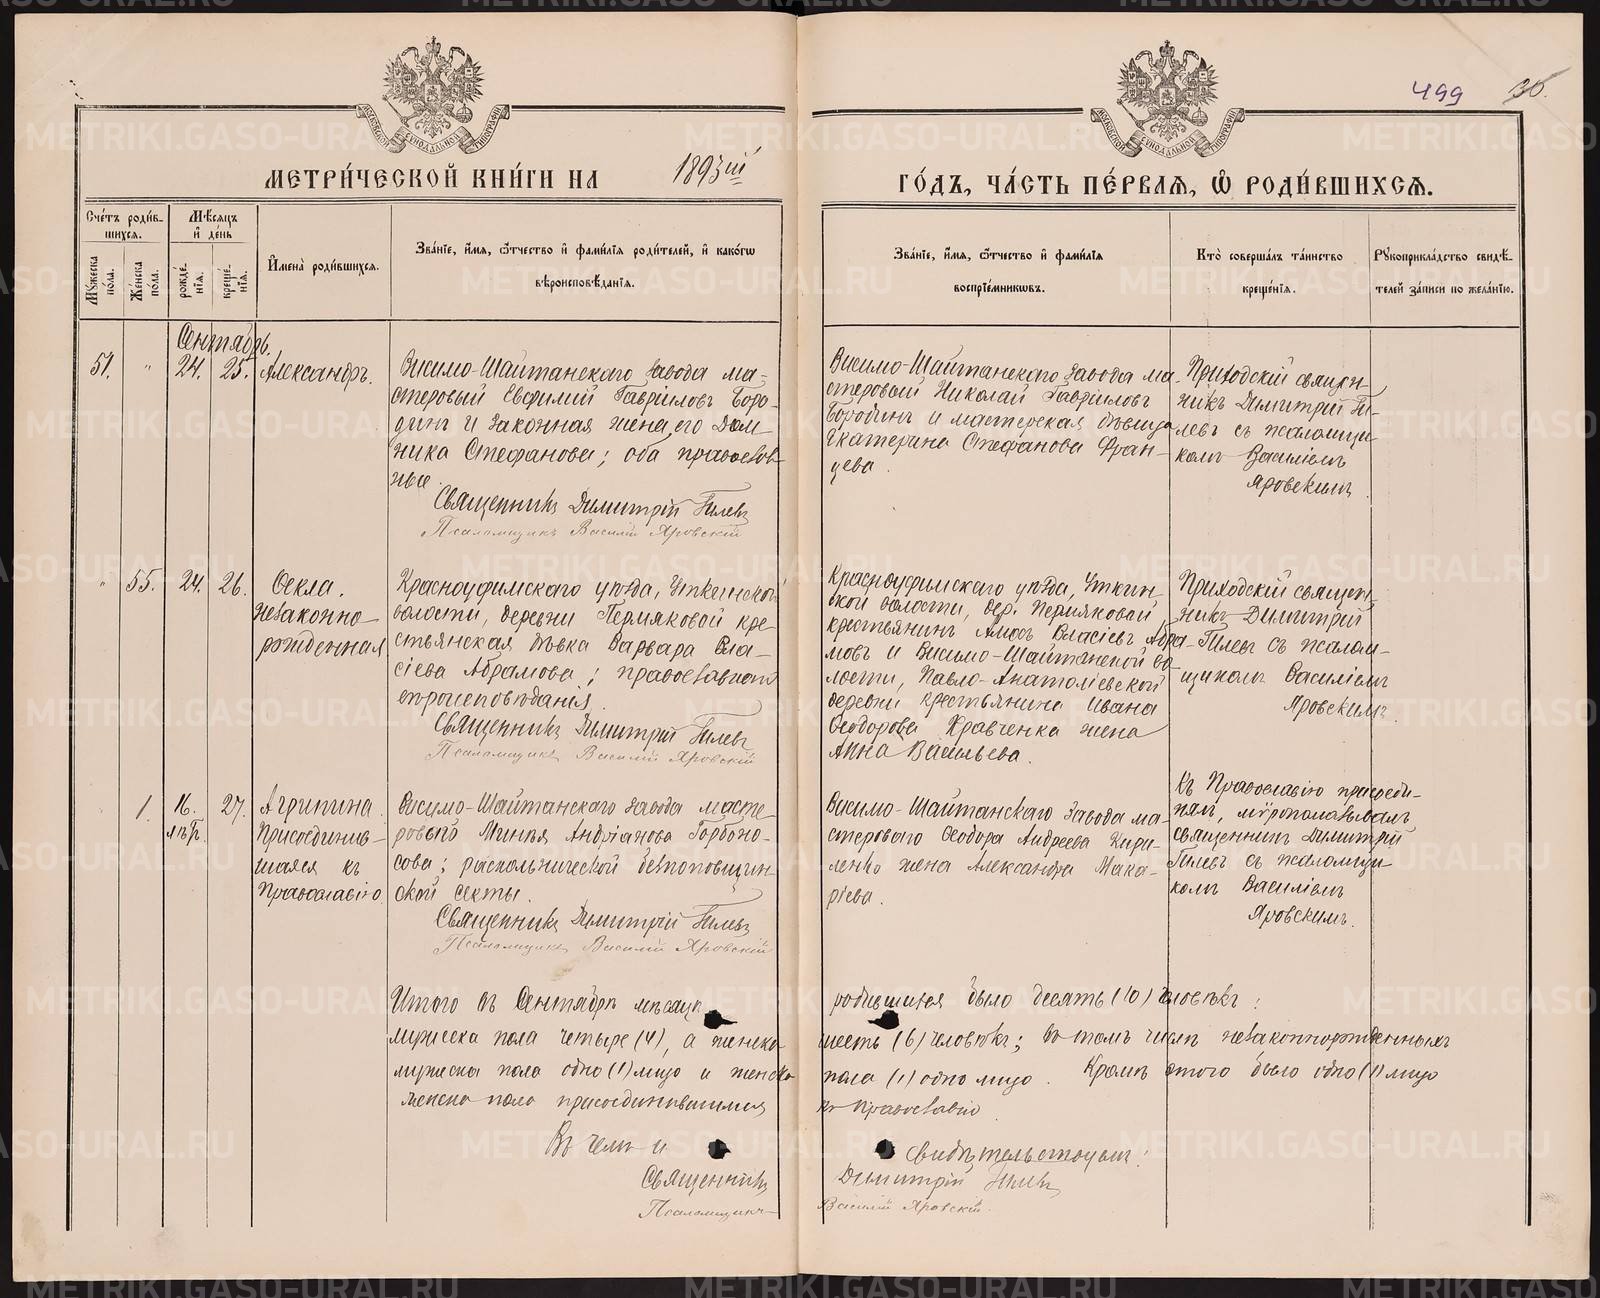 499 36.
МОСКОВСКОЙ СѴНОДАЛЬНОЙ ТИПОГРАФІИ
МОСКОВСКОЙ СѴНОДАЛЬНОЙ ТИПОГРАФІИ
МЕТРИ́ЧЕСКОЙ КНИ́ГИ НА 1893ій
ГО́ДЪ, ЧА́СТЬ ПЕ́РВАЯ, Ѡ҆ РОДИ́ВШИХСЯ.
Сче́тъ роди́в-
шихся.
Мѣ́сяцъ
и҆ де́нь
Мꙋ́жеска
по́ла.
Же́нска
по́ла.
рожде́-
нїѧ.
креще́-
нїѧ.
И҆мена̀ роди́вшихся.
Зва́нїе, и҆́мя, ѻ҆́тчество и҆ фами́лїя роди́телей, и҆ како́гѡ
вѣроисповѣ́данїя.
Зва́нїе, и҆́мя, ѻ҆́тчество и҆ фами́лїя
воспрїе́мникѡвъ.
Кто̀ соверша́лъ та́инство
креще́нїя.
Рꙋкоприкла́дство свидѣ́-
телей за́писи по жела́нїю.
Сентябрь.
51. " 24. 25. Александръ.
Висимо-Шайтанскаго завода ма-
стеровый Евфимій Гавриловъ Боро-
динъ и законная жена его Дом-
ника Стефанова; оба православ-
ные.
Священникъ Димитрій Гилевъ
Псаломщикъ Василій Яровскій
Висимо-Шайтанскаго завода ма-
стеровой Николай Гавриловъ
Бородинъ и мастерская дѣвица
Екатерина Стефанова Фран-
цева.
Приходскій священ-
никъ Димитрій Ги-
левъ съ псаломщи-
комъ Василіемъ
Яровскимъ
" 55. 24. 26. Ѳекла.
незаконно-
рожденная
Красноуфимскаго уѣзда, Уткинской
волости, деревни Пермяковой кре-
стьянская дѣвка Варвара Вла-
сіева Абрамова; православнаго
вѣроисповѣданія.
Священникъ Димитрій Гилевъ
Псаломщикъ Василій Яровскій
Красноуфимскаго уѣзда, Уткин-
ской волости, дер. Пермяковой
крестьянинъ Власіевъ Абра-
мовъ и Висимо-Шайтанской во-
лости, Павло-Анатоліевской
деревни крестьянина Ивана
Ѳеодорова Кравченка жена
Анна Васильева.
Приходскій священ-
никъ Димитрій
Гилевъ съ псалом-
щикомъ Василіемъ
Яровскимъ.
1. 16. 27. Агрипина.
лѣтъ.
Присоединив-
шаяся къ
Православію.
Висимо-Шайтанскаго завода масте-
роваго Андріанова Горбоно-
сова; раскольнической безпоповщин-
ской секты.
Священникъ Димитрій Гилевъ
Псаломщикъ Василій Яровскій
Висимо-Шайтанскаго завода ма-
стероваго Ѳеодора Андреева Кири-
ленко жена Александра Мака-
ріева.
Къ Православію присоеди-
нялъ, мѵропомазывалъ
священникъ Димитрій
Гилевъ съ псаломщи-
комъ Василіемъ
Яровскимъ.
Итого въ Сентябрѣ мѣсяцѣ родившихся было десять (10) человѣкъ:
мужеска пола четыре (4), а женска шесть (6) человѣкъ; въ томъ числѣ незаконнорожденныхъ
мужеска пола одно (1) лицо и женска пола (1) одно лицо. Кромѣ этого было одно (1) лицо
женска пола присоединившимся къ Православію.
Въ чемъ и свидѣтельствуемъ:
Священникъ Димитрій Гилевъ
Псаломщикъ Василій Яровскій.
METRIKI.GASO-URAL.RU